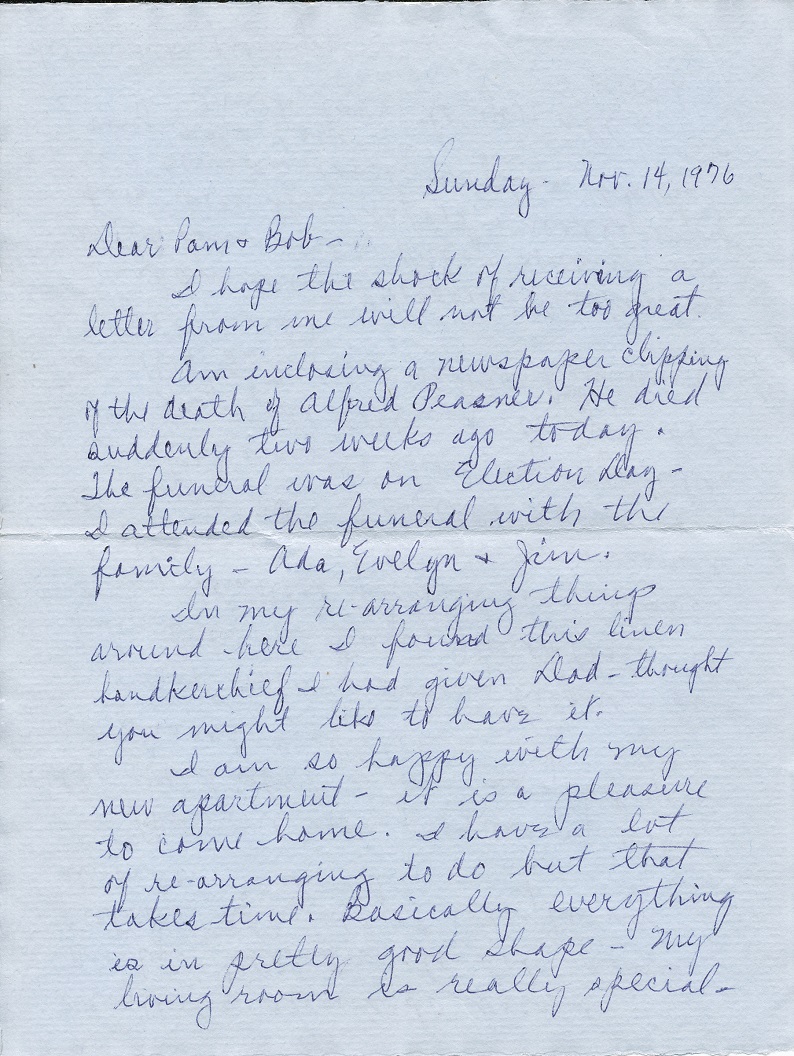 Sunday - Nov. 14, 1976
Dear Pam & Bob -
I hope the shock of receiving a
letter from me will not be too great.
Am inclosing a newspaper clipping
of the death of Alfred Peasner. He died
suddenly two weeks ago today.
The funeral was on Election Day -
I attended the funeral with the
family - Ada, Evelyn & Jim.
In my re-arranging things
around here I found this linen
handkerchief I had given Dad - thought
you might like to have it.
I am so happy with my
new apartment - it is a pleasure
to come home. I have a lot
of re-arranging to do but that
takes time. Basically everything
is in pretty good shape - My
living room is really special -